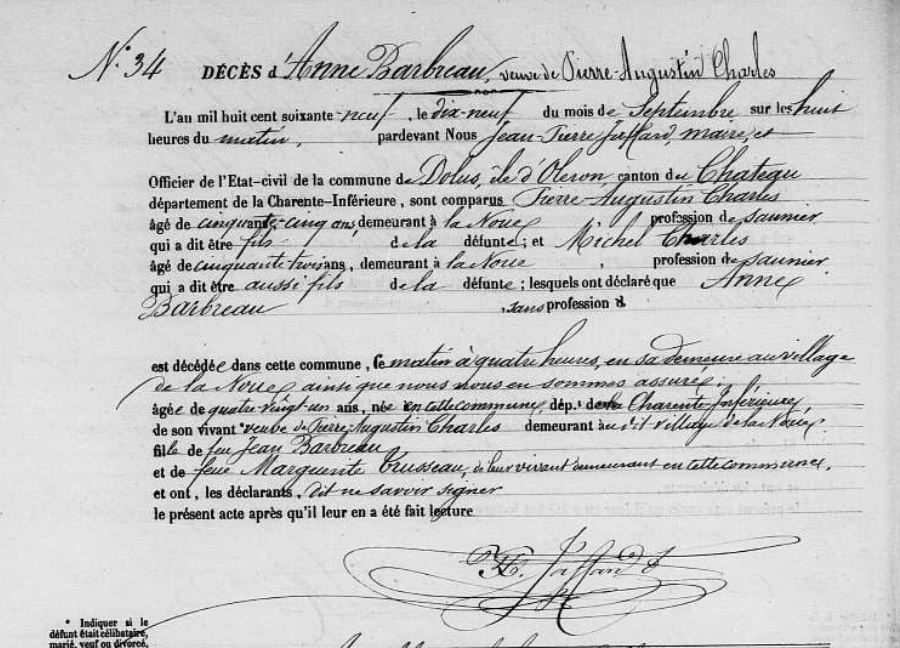 N.° 34 DÉCÈS d'Anne Barbreau, veuve de Pierre-Augustin Charles
L'an mil huit cent soixante-neuf, le dix-neuf du mois de Septembre sur les huit
heures du matin, pardevant Nous Jean-Pierre Jaffard, maire, et
Officier de l'Etat-civil de la commune de Dolus, île d'Oleron, canton du Chateau
département de la Charente-Inférieure, sont comparus Pierre-Augustin Charles
âgé de cinquante-cinq ans, demeurant à la Noue profession de saunier
qui a dit être fils de la défunte; et Michel Charles
âgé de cinquante trois ans, demeurant à la Noue, profession de saunier
qui a dit être aussi fils de la défunte; lesquels ont déclaré que Anne
Barbreau, sans profession d
est décédée dans cette commune, ce matin à quatre heures, en sa demeure au village
de la Noue, ainsi que nous nous en sommes assuré;
âgée de quatre-vingt-un ans, née en cette commune, dép.t de la Charente Inférieure
de son vivant veuve de Pierre-Augustin Charles demeurant au dit village de la Noue
fille de feu Jean Barbreau
et de feue Marguerite Trusseau, de leur vivant demeurant en cette commune.
et ont, les déclarants, dit ne savoir signer
le présent acte après qu'il leur en a été fait lecture
Jaffard
* Indiquer si le
défunt était célibataire,
marié, veuf ou divorcé,